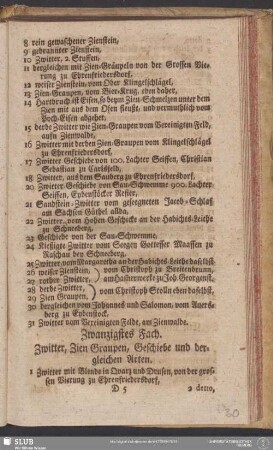 8 rein gewaschener Zienstein,
9 gebrannter Zienstein,
10 Zwitter, 2. Stuffen,
11 dergleichen mit Zien-Gräupeln von der Grossen Vierung
zu Ehrenfriedersdorf,
12 weiser Zienstein vom Ober Klingeschlägel,
13 Zien-Graupen, vom Bier-Krug, eben daher,
14 Hartbruch ist Eisen, so beym Zien-Schmelzen unter dem
Zien mit aus dem Ofen fleußt, und vermuthlich vom
Poch-Eisen abgehet,
15 derbe Zwitter wie Zien-Graupen vom Vereinigten Feld,
aufn Zienwalde,
16 Zwitter mit derben Zien-Graupen vom Klingeschlägel
zu Ehrenfriedersdorf,
17 Zwitter Geschiebe von 100. Lachter Seiffen, Christian
Sebastian zu Carlsfeld,
18 Zwitter, aus dem Sauberg zu Ehrenfriedersdorf,
20 Zwitter-Geschiebe von Sau-Schwemme 900. Lachter
Seiffen, Eybenstöcker Refier,
21 Sandstein-Zwitter vom gesegneten Jacob-Schloß
am Sachsen Güthel allda,
22 Zwitter, vom Hohen Geschiebe an der Habichts-Leithe
zu Schneeberg,
23 Geschiebe von der Sau-Schwemme,
24 Kiesigte Zwitter vom Sorgen Gottesser Maassen zu
Raschau bey Schneeberg,
25 Zwitter, vom Margaretha an der Habichts-Leithe daselbst
26 weiser Zienstein, vom Christoph zu Breitenbrunn,
27 rother Zwitter, am Halterwerke zu Joh. Georgenst.
28 derbe Zwitter,
29 Zien Graupen, vom Christoph Stolln eben daselbst,
30 dergleichen vom Johannes und Salomon, vom Auersberg
zu Eybenstock,
31 Zwitter vom Vereinigten Felde, am Zienwalde.
Zwanzigstes Fach.
Zwitter, Zien Graupen, Geschiebe und dergleichen
Arten.
1 Zwitter mit Blende in Quarz und Drusen, von der grossen
Vierung zu Ehrenfriedersdorf,
D 5
2 detto,
60
SLUB